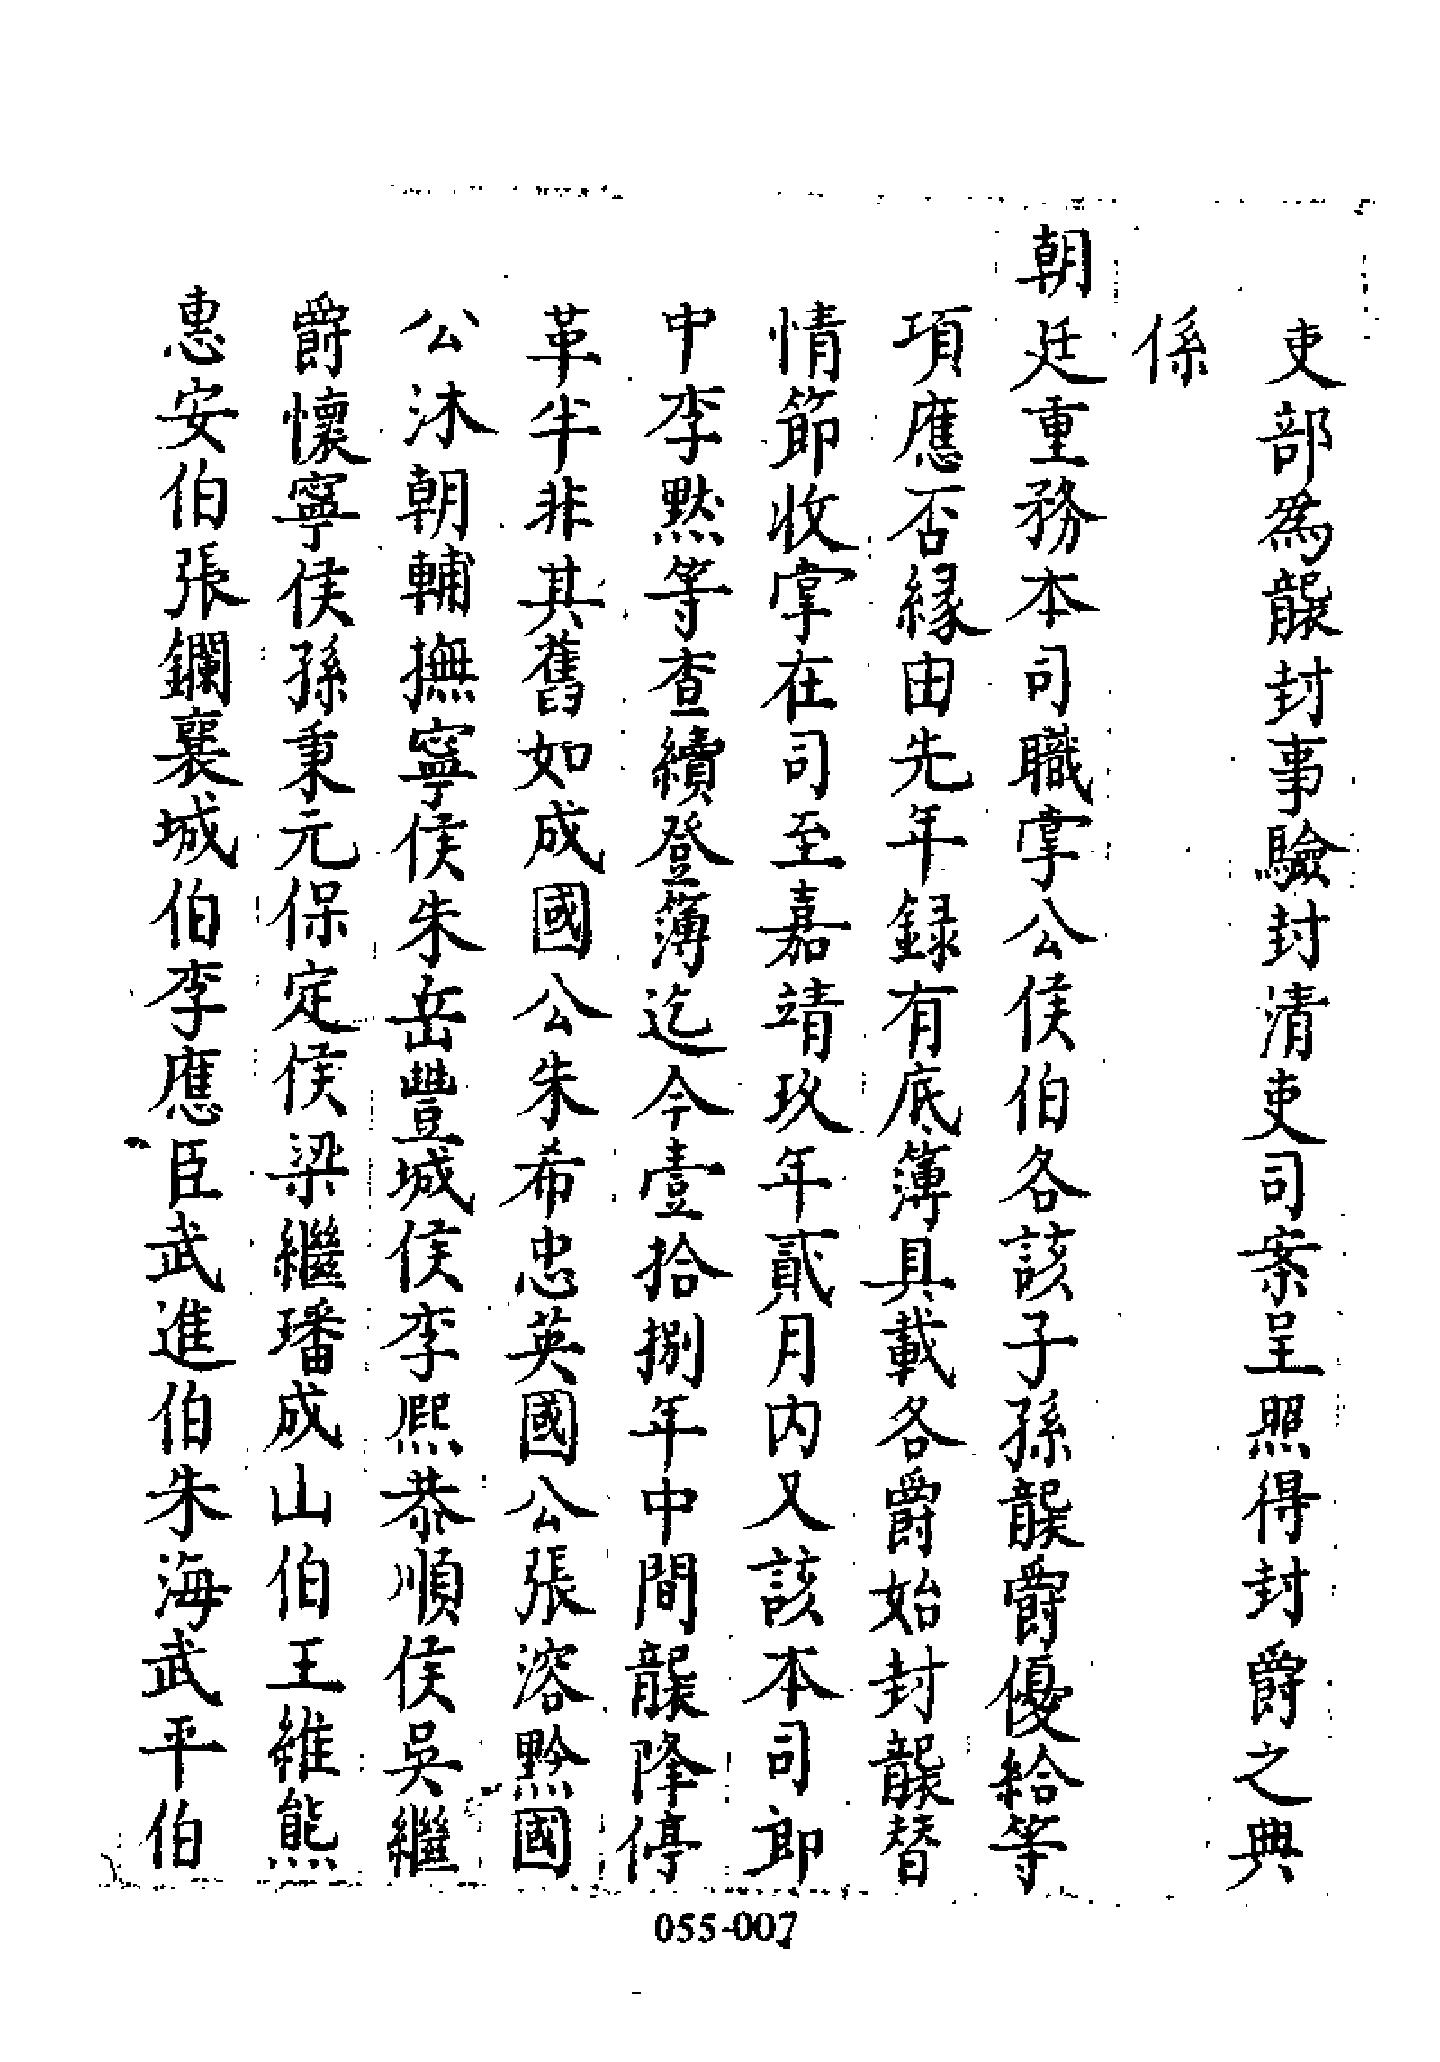 吏部爲襲封事驗封清吏司案呈照得封爵之典
係
朝廷重務本司職掌公侯伯各該子孫襲爵優給等
項應否緣由先年録有底簿具載各爵始封襲替
情節收掌在司至嘉靖玖年貳月內又該本司郎
中李默等查續登簿迄今壹拾捌年中間襲降停
革半非其舊如成國公朱希忠英國公張溶黔國
公沐朝輔撫寧侯朱岳豐城侯李熙恭順侯吳繼
爵懷寧侯孫秉元保定侯梁繼璠成山伯王維熊
惠安伯張鑭襄城伯李應臣武進伯朱海武平伯
055-007